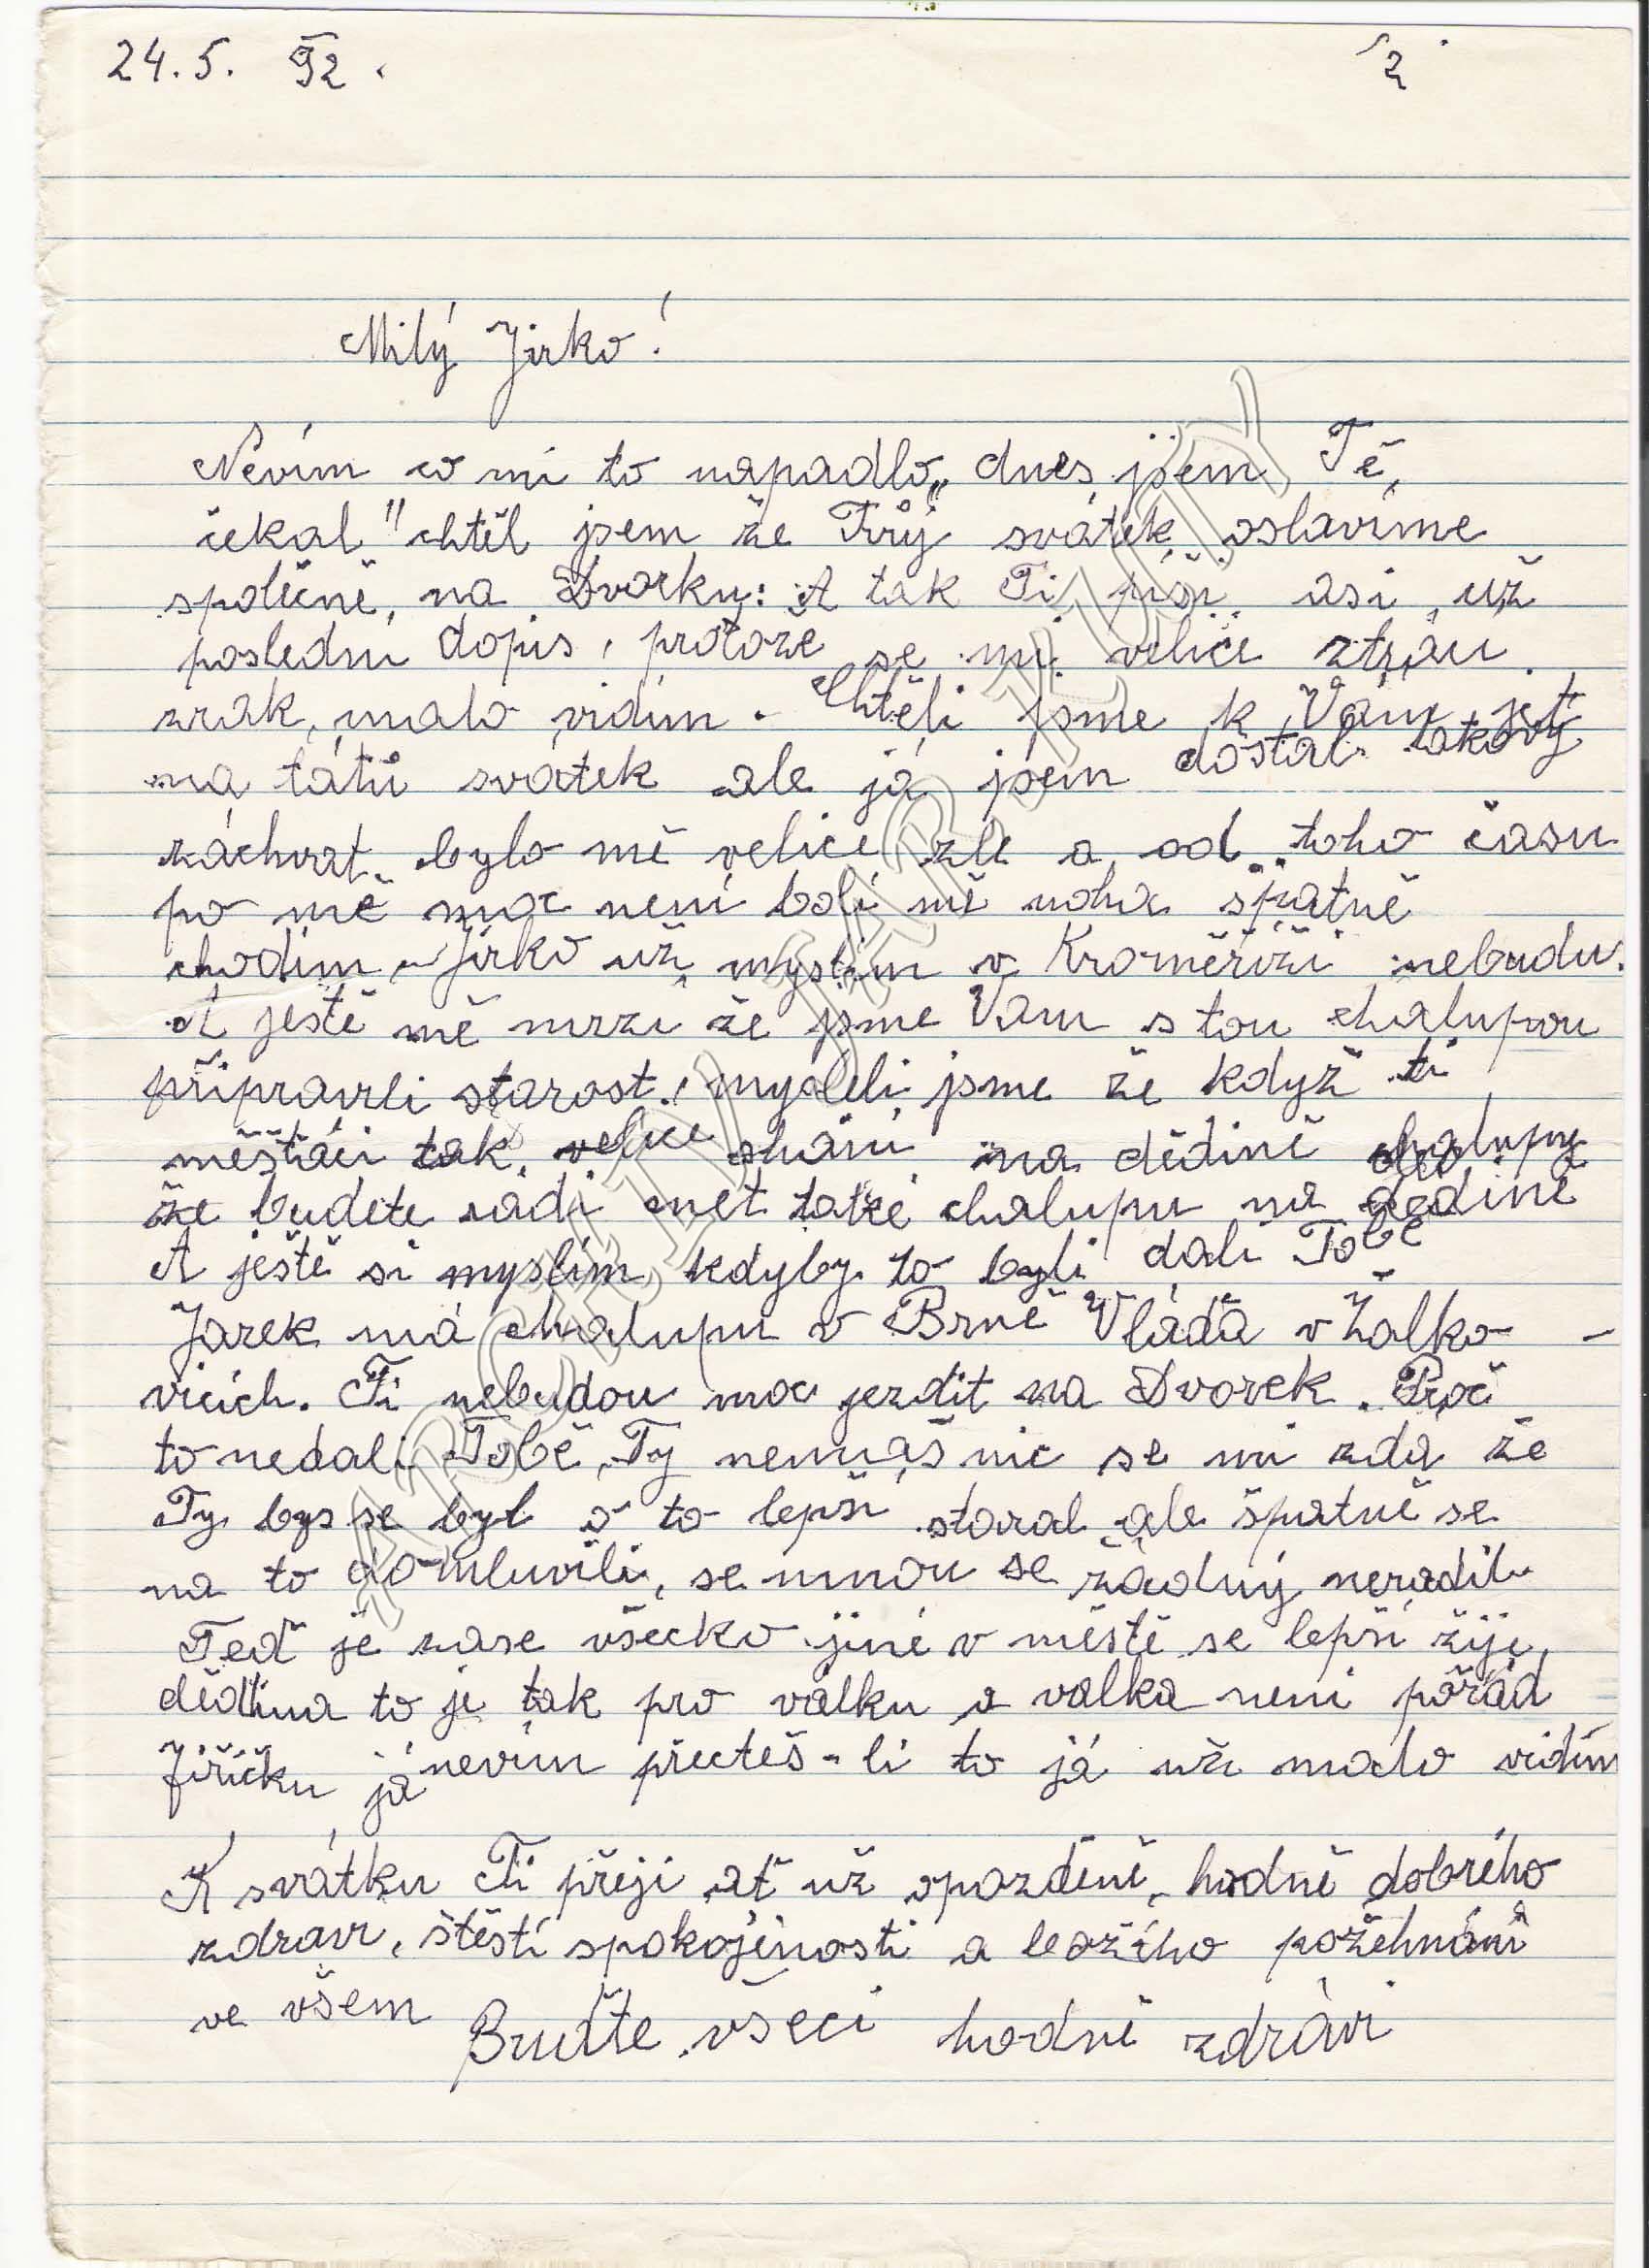 24. 5. 92. 2
Milý Jirko!
Nevím co mi to napadlo „dnes jsem Tě
čekal" chtěl jsem že Tvůj svátek oslavíme
společně, na Dvorku: A tak Ti píši asi už
poslední dopis, protože se mi velice ztrácí
zrak, malo vidím. Chtěli jsme k Vám jet
na tátů svátek ale já jsem dostal takový
záchvat bylo mě velice zle a od toho času
po mě moc není bolí mě noha špatně
chodím. Jirko už myslím v Kroměříži nebudu.
A ještě mě mrzí že jsme Vám s tou chalupou
připravili starost. mysleli jsme že když ti
měšťáci tak velice shání na dědině chalupy
že budete rádi mět také chalupu na dědině
A ještě si myslím kdyby to byli dali Tobě
Jarek má chalupu v Brně Vláďa v Žalko-
vicích. Ti nebudou moc jezdit na Dvorek. Proč
to nedali Tobě, Ty nemáš nic se mi zdá že
Ty bys se byl o to lepší staral ale špatně se
na to domluvili, se mnou se žádný neradil.
Teď je zase všecko jiné v městě se lepší žije,
dědina to je tak pro válku a válka neni pořád
Jiříčku já nevím přečteš-li to já už málo vidím
K svátku Ti přeji ať už opozděně, hodně dobrého
zdraví, štěstí spokojenosti a božího požehnání
ve všem Buďte všeci hodně zdrávi
ARCHIV JAR. KUTY